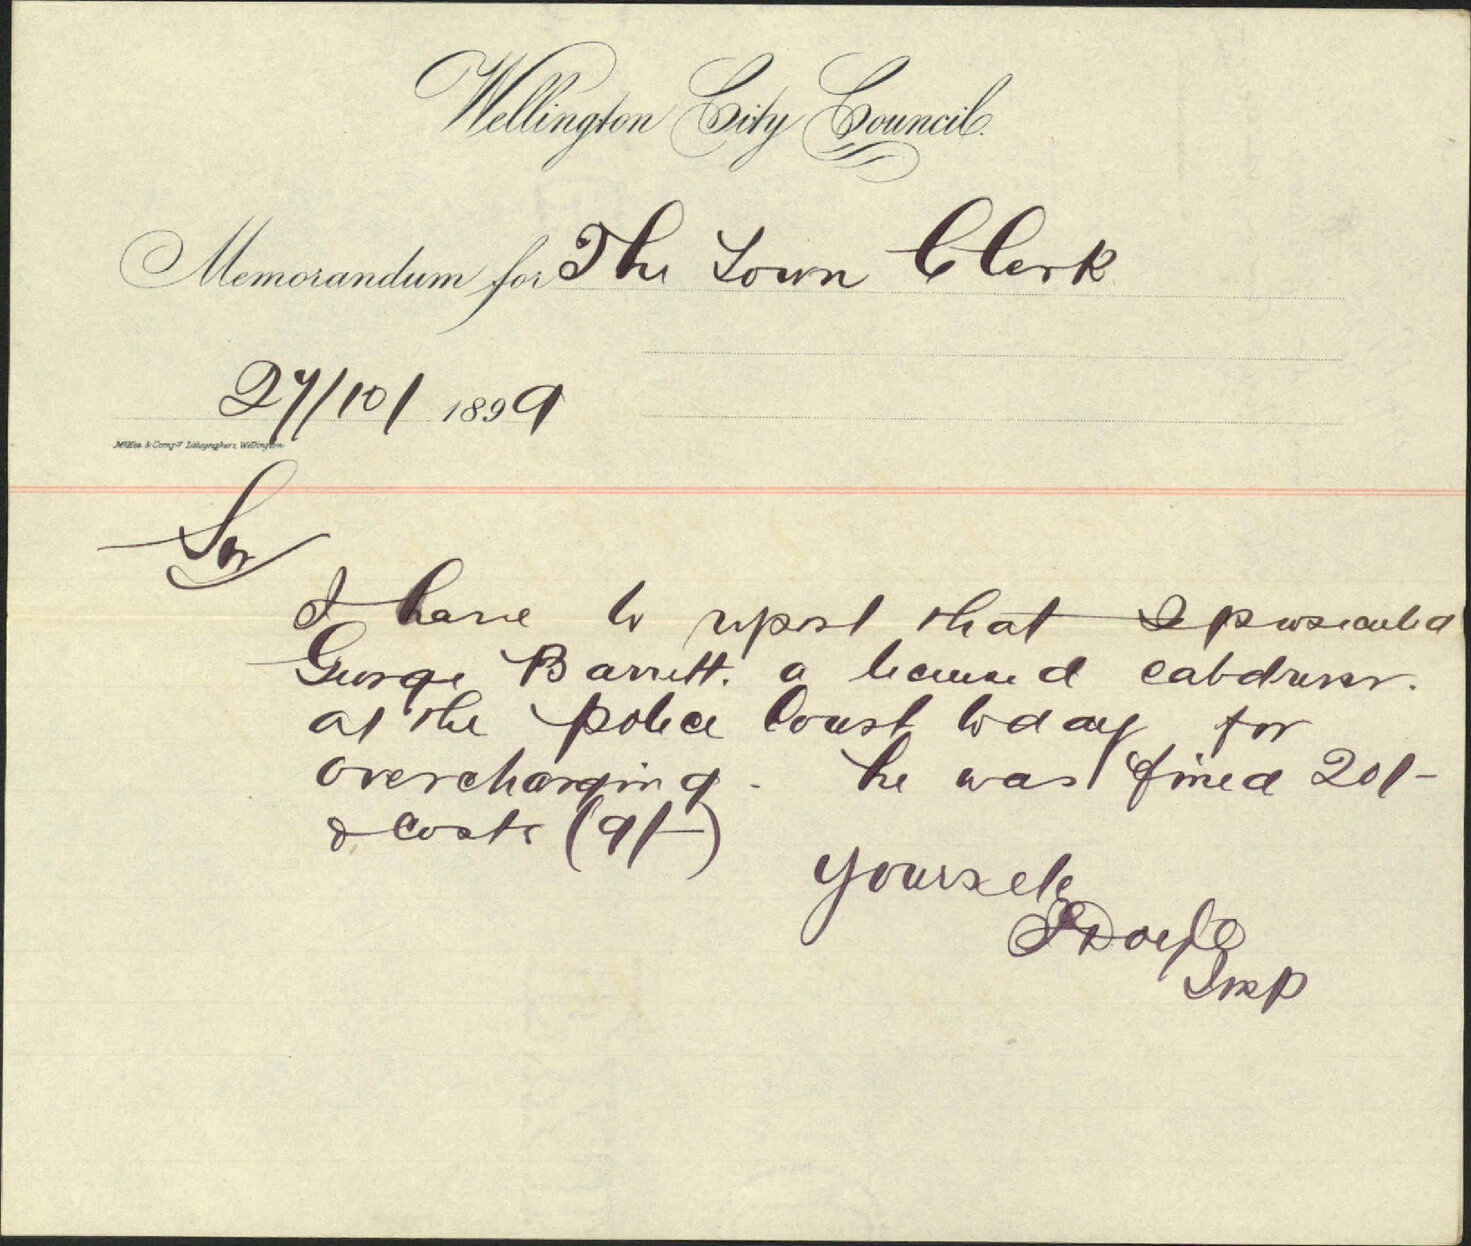 Wellington City Council.
Memorandum for The Town Clerk
27/10/1899
McKee & Compy Lithographers, Wellington
Sir
I have to report that I prosecuted
George Barrett. a licensed cabdriver.
at the police Court today for
overcharging. he was fined 20/-
& costs (9/-)
yours etc
Insp